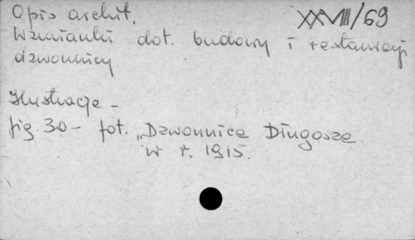 Opis archit.
XXVIII/69
Wzmianki dot. budowy i restauracji
dzwonnicy
Ilustracje -
fig. 30 - fot. „Dzwonnica Długosza
w r. 1915.